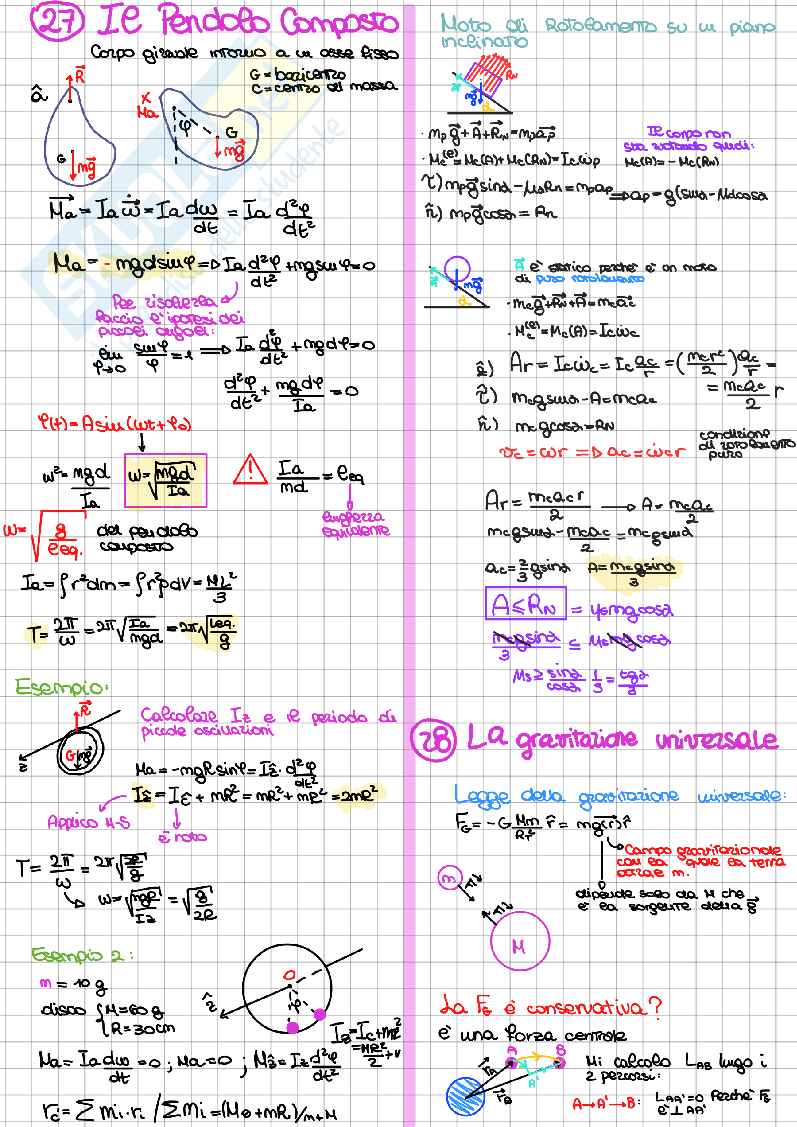 27 Il Pendolo Composto
Corpo girevole intorno a un asse fisso
G = baricentro
C = centro di massa
R⃗
â
G
mg⃗
x
Ma
φ
G
mg⃗
M⃗a = Ia ω⃗̇ = Ia dω/dt = Ia d²φ/dt²
Ma = -mgd sinφ => Ia d²φ/dt² + mg sinφ = 0
Per risolverla
faccio l'ipotesi dei
piccoli angoli:
lim φ→0 sinφ/φ = 1 => Ia d²φ/dt² + mgdφ = 0
d²φ/dt² + mgdφ/Ia = 0
φ(t) = A sin(ωt + φ0)
ω² = mgd/Ia
ω = √(mgd/Ia)
! Ia/md = leq
lunghezza
equivalente
ω = √(g/leq.) del pendolo
composto
Ia = ∫r²dm = ∫r²ρdV = ML²/3
T = 2π/ω = 2π√(Ia/mgd) = 2π√(leq./g)
Esempio:
R⃗
G
z
Calcolare Iz e il periodo di
piccole oscillazioni
Ma = -mgR sinφ = Iẑ · d²φ/dt²
Iẑ = Iĉ + mR² = mR² + mR² = 2mR²
Applico H-S
è noto
T = 2π/ω = 2π√(2R/g)
ω = √(mgR/Iz) = √(g/2R)
Esempio 2:
m = 10 g
disco { M = 60 g
R = 30 cm
O
φ
Iz = Ic + mR²
Ma = Ia dω/dt = 0 ; Ma = 0 ; Mẑ = Iz d²φ/dt²
rc = Σ mi·ri / Σ mi = (M0 + mR)/m+M
Moto di Rotolamento su un piano
inclinato
RN
mg⃗
α
· mpg⃗ + A⃗ + R⃗N = mpa⃗p
· Mc(e) = Mc(A) + Mc(RN) = Icω̇p
Il corpo non
sta ruotando quindi:
Mc(A) = - Mc(RN)
τ̂) mpg⃗ sinα - μsRn = mpap => ap = g(sinα - μdcosα
n̂) mpg⃗cosα = Rn
mg⃗
α
A⃗ è statico perché è un moto
di puro rotolamento
· mcg⃗ + R⃗N + A⃗ = mca⃗c
· Mc(e) = Mc(A) = Icω̇c
ẑ) Ar = Icω̇c = Ic ac/r = (mcr²/2) ac/r =
= mcac/2 r
τ̂) mcg sinα - A = mcac
n̂) mcg cosα = RN
vc = ωr => ac = ω̇cr
condizione
di rotolamento
puro
Ar = mcacr/2 → A = mcac/2
mcg sinα - mcac/2 = mcg sinα
ac = 2/3 g sinα A = mcg sinα/3
A ≤ RN = μsmg cosα
mcg sinα/3 ≤ μs mg cosα
μs ≥ sinα/cosα 1/3 = tgα/3
28 La gravitazione universale
Legge della gravitazione universale:
FG = -G Mm/RT² r̂ = mg⃗(r) r̂
Campo gravitazionale
con la quale la terra
attrae m.
dipende solo da M che
è la sorgente della g⃗
m
M
La FG è conservativa?
è una forza centrale
A
B
A'
rA
rB
Mi calcolo LAB lungo i
2 percorsi:
A→A'→B: LAA' = 0 perché FG
è ⊥ AA'